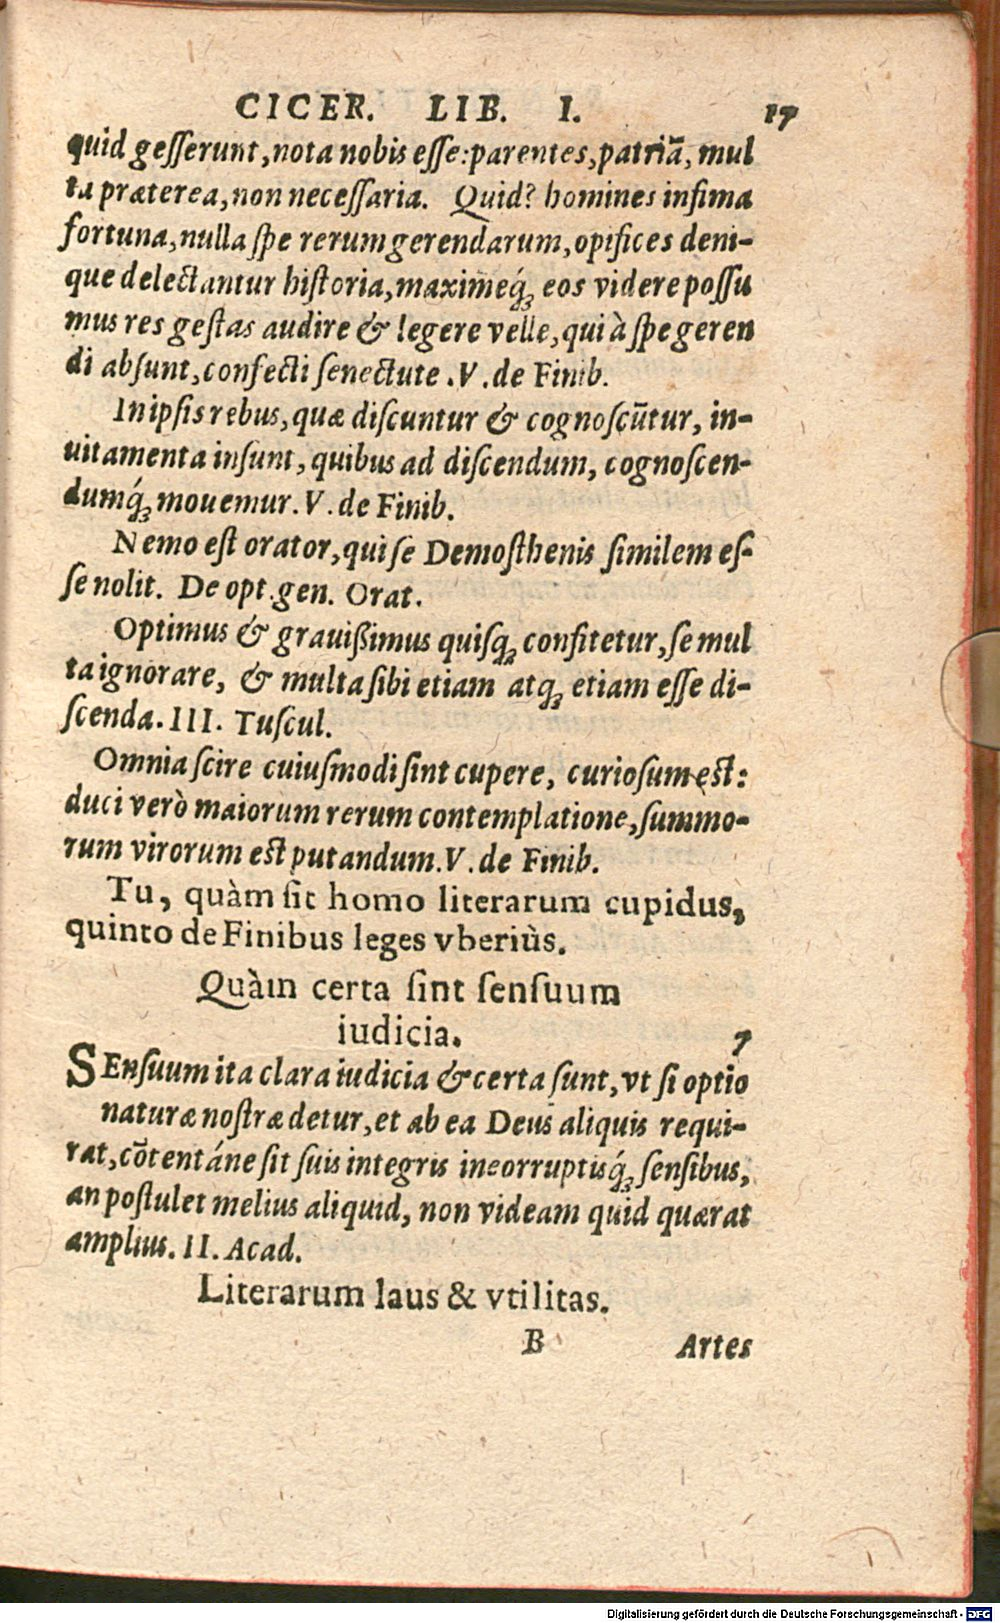 CICER. LIB. I. 17
quid geſſerunt, nota nobis eſſe: parentes, patriā, mul
ta præterea, non neceſſaria. Quid? homines infima
fortuna, nulla ſpe rerum gerendarum, opifices deni-
que delectantur hiſtoria, maximeq́ꝫ eos videre poſſu
mus res geſtas audire & legere velle, qui à ſpe geren
di abſunt, confecti ſenectute. V. de Finib.
In ipſis rebus, quæ diſcuntur & cognoſcūtur, in-
uitamenta inſunt, quibus ad diſcendum, cognoſcen-
dumq́ꝫ mouemur. V. de Finib.
Nemo eſt orator, qui ſe Demoſthenis ſimilem eſ-
ſe nolit. De opt. gen. Orat.
Optimus & grauiſſimus quiſqꝫ confitetur, ſe mul
ta ignorare, & multa ſibi etiam atqꝫ etiam eſſe di-
ſcenda. III. Tuſcul.
Omnia ſcire cuiuſmodi ſint cupere, curioſum eſt:
duci verò maiorum rerum contemplatione, ſummo-
rum virorum eſt putandum. V. de Finib.
Tu, quàm ſit homo literarum cupidus,
quinto de Finibus leges vberiùs.
Quàm certa ſint ſenſuum
iudicia. 7
SEnſuum ita clara iudicia & certa ſunt, vt ſi optio
naturæ noſtræ detur, et ab ea Deus aliquis requi-
rat, cōtentáne ſit ſuis integris incorruptisq́ꝫ ſenſibus,
an poſtulet melius aliquid, non videam quid quærat
amplius. II. Acad.
Literarum laus & vtilitas.
B Artes
Digitalisierung gefördert durch die Deutsche Forschungsgemeinschaft - DFG